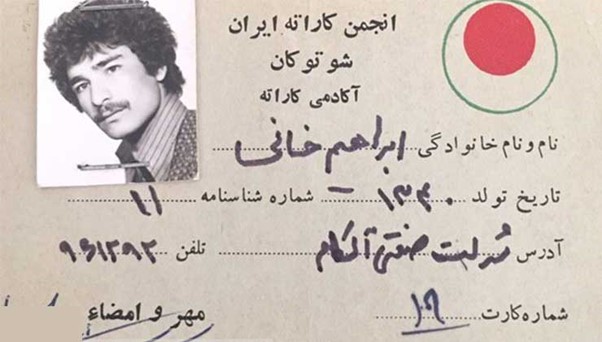 انجمن کاراته ایران
شوتوکان
آکادمی کاراته
نام و نام خانوادگی ابراهیم خانی
تاریخ تولد ۱۳۴۰ شماره شناسنامه ۱۱
آدرس صنعتی تلفن
شماره کارت ۱۹ مهر و امضاء